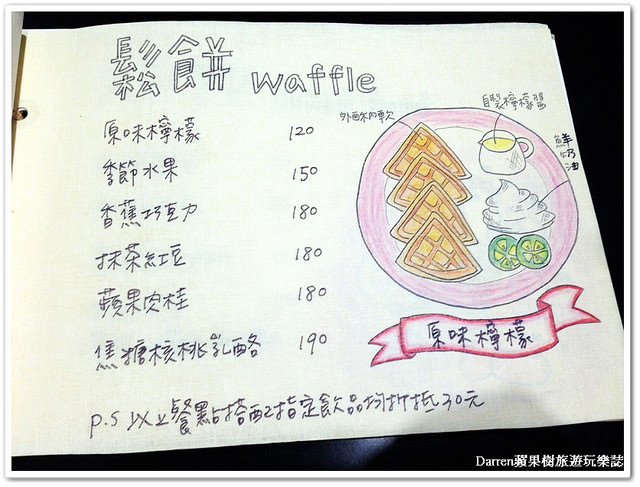 鬆餅 waffle
原味檸檬 120
季節水果 150
香蕉巧克力 180
抹茶紅豆 180
蘋果肉桂 180
焦糖核桃乳酪 190
P.S 以上餐點搭配指定飲品均折抵30元
外酥內軟
自製檸檬醬
鮮奶油
原味檸檬
Darren蘋果樹旅遊玩樂誌